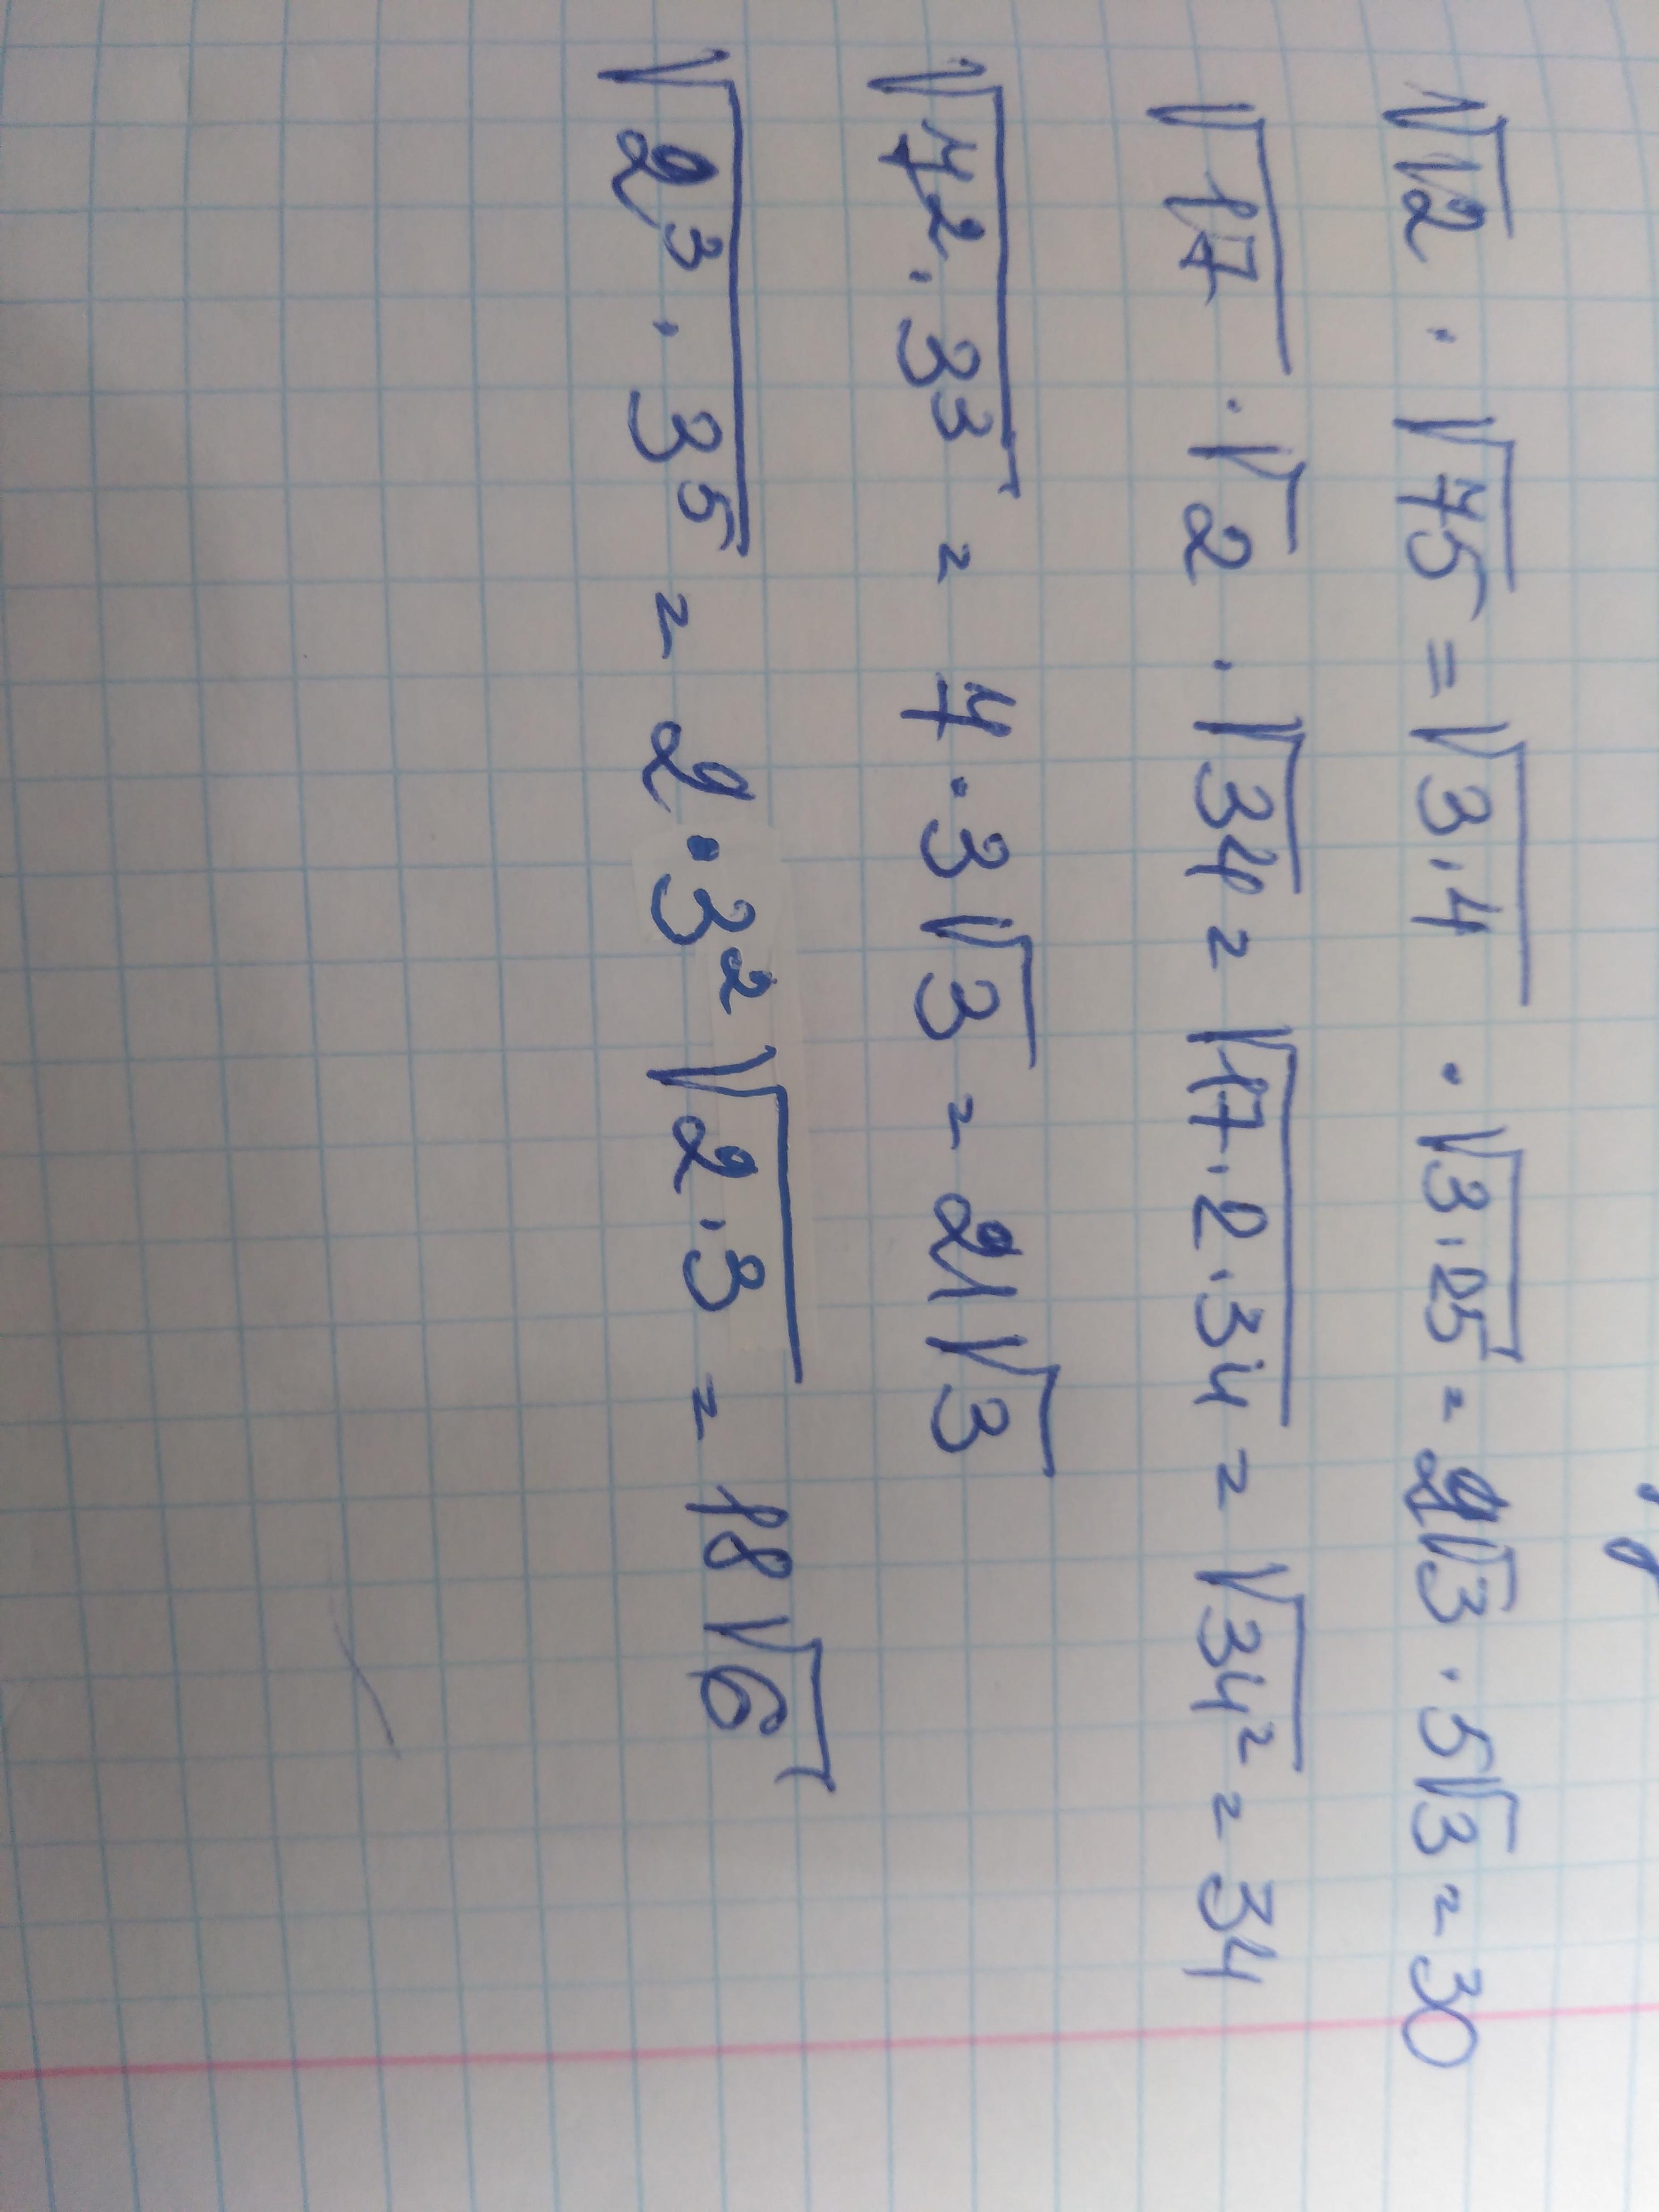 √12 · √75 = √3·4 · √3·25 = 2√3 · 5√3 = 30
√17 · √2 · √34 = √17·2·34 = √34² = 34
√7²·3³ = 7·3√3 = 21√3
√2³·3⁵ = 2·3²√2·3 = 18√6